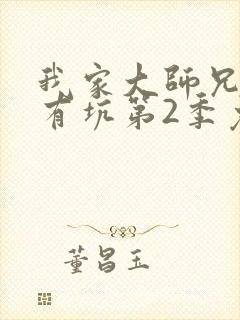 我家大师兄
有坑第2季
董昌玉